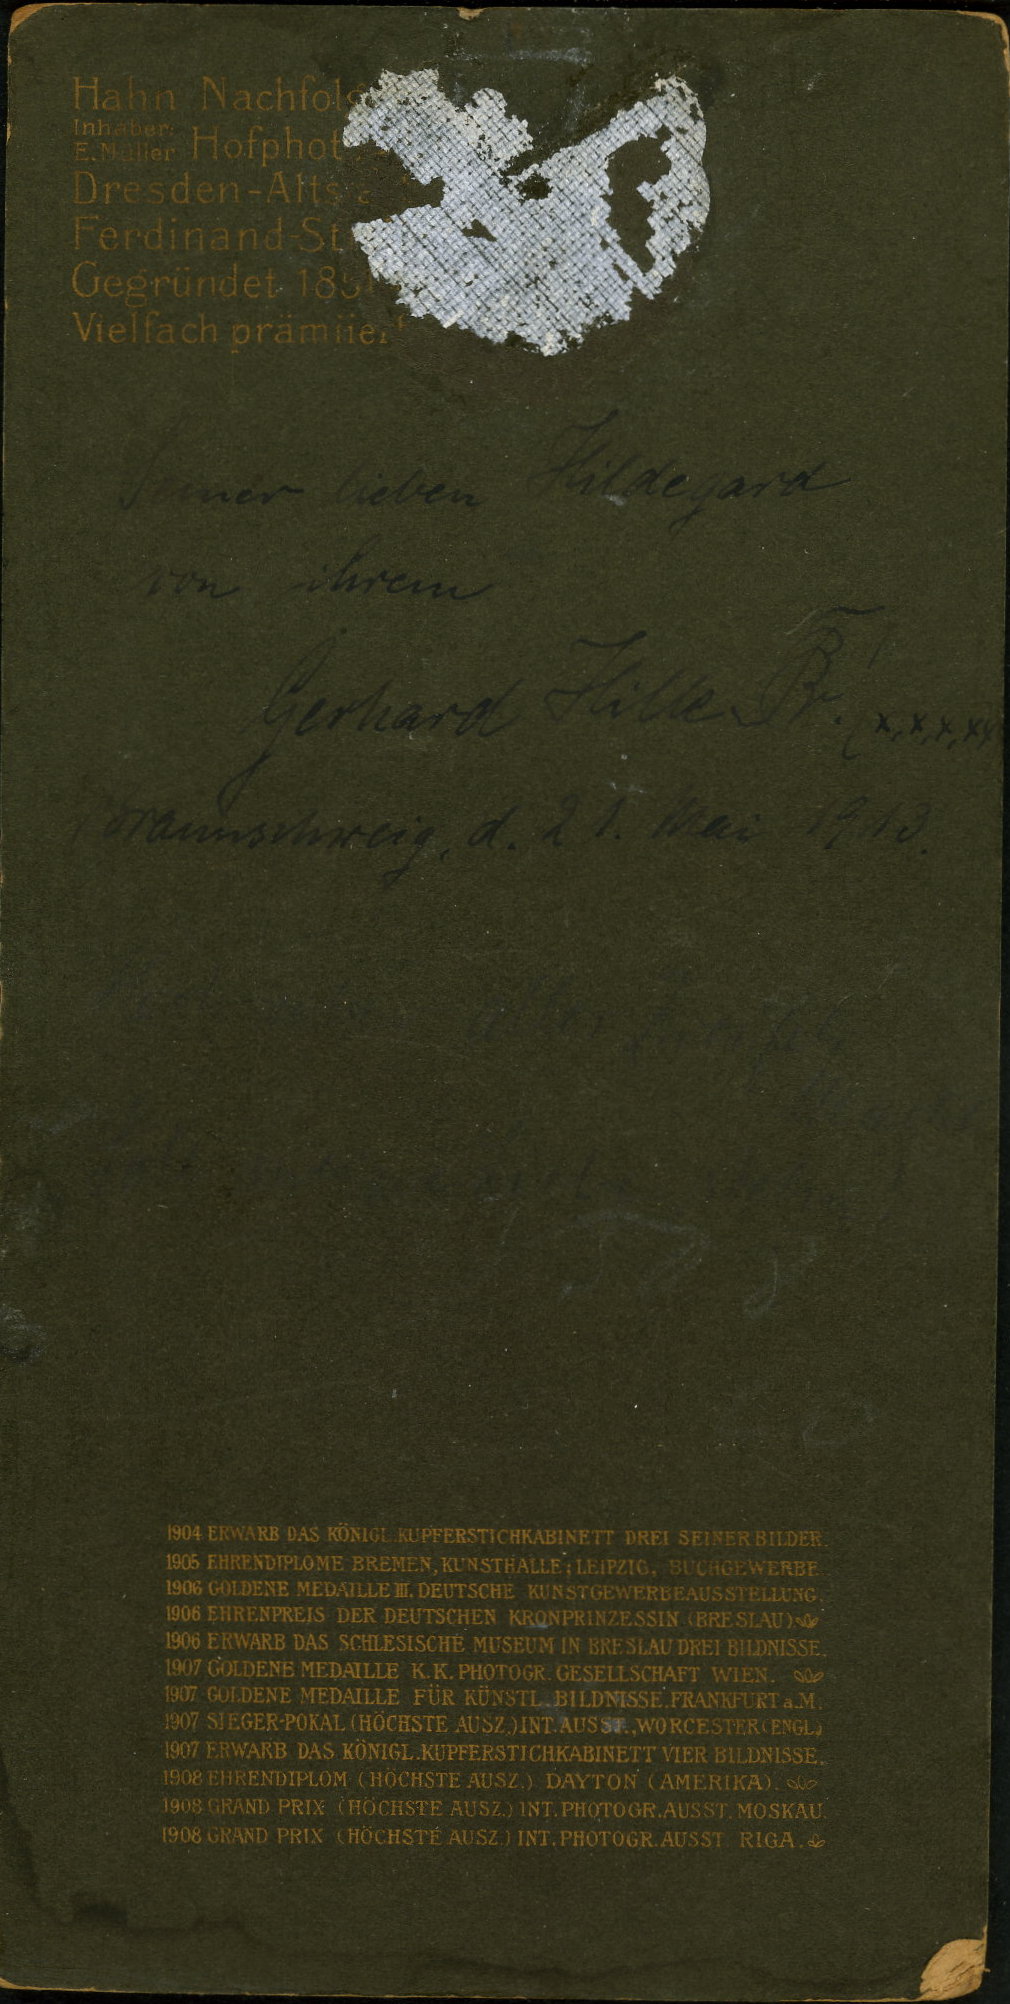 Hahn Nachfolg
Inhaber:
E. Müller Hofphot
Dresden-Alts
Ferdinand-St
Gegründet 185
Vielfach prämiiert
Seiner lieben Hildegard
von ihrem
Gerhard Hille
(x, x, x, xx
Braunschweig, d. 21. Mai 1913.
1904 ERWARB DAS KÖNIGL. KUPFERSTICHKABINETT DREI SEINER BILDER.
1905 EHRENDIPLOME BREMEN, KUNSTHALLE; LEIPZIG, BUCHGEWERBE
1906 GOLDENE MEDAILLE III. DEUTSCHE KUNSTGEWERBEAUSSTELLUNG.
1906 EHRENPREIS DER DEUTSCHEN KRONPRINZESSIN (BRESLAU)
1906 ERWARB DAS SCHLESISCHE MUSEUM IN BRESLAU DREI BILDNISSE.
1907 GOLDENE MEDAILLE K. K. PHOTOGR. GESELLSCHAFT WIEN.
1907 GOLDENE MEDAILLE FÜR KÜNSTL. BILDNISSE. FRANKFURT a.M.
1907 SIEGER-POKAL (HÖCHSTE AUSZ.) INT. AUSST., WORCESTER (ENGL.)
1907 ERWARB DAS KÖNIGL. KUPFERSTICHKABINETT VIER BILDNISSE.
1908 EHRENDIPLOM (HÖCHSTE AUSZ.) DAYTON (AMERIKA).
1908 GRAND PRIX (HÖCHSTE AUSZ.) INT. PHOTOGR. AUSST. MOSKAU.
1908 GRAND PRIX (HÖCHSTE AUSZ.) INT. PHOTOGR. AUSST. RIGA.